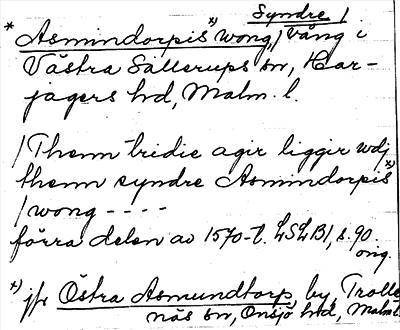 Syndre /
* Asmindorpis *) wong, / vång i
Västra Sallerups sn, Har-
jagers hd, Malm. l.
/ Thenn tridie agir liggir wdj
thenn syndre Asmindorpis *)
/ wong - - - -
förra delen av 1570-t. LSLB1, s. 90.
orig.
*) jfr Östra Asmundtorp, by, Trolle-
näs sn, Onsjö hd, Malm. l.